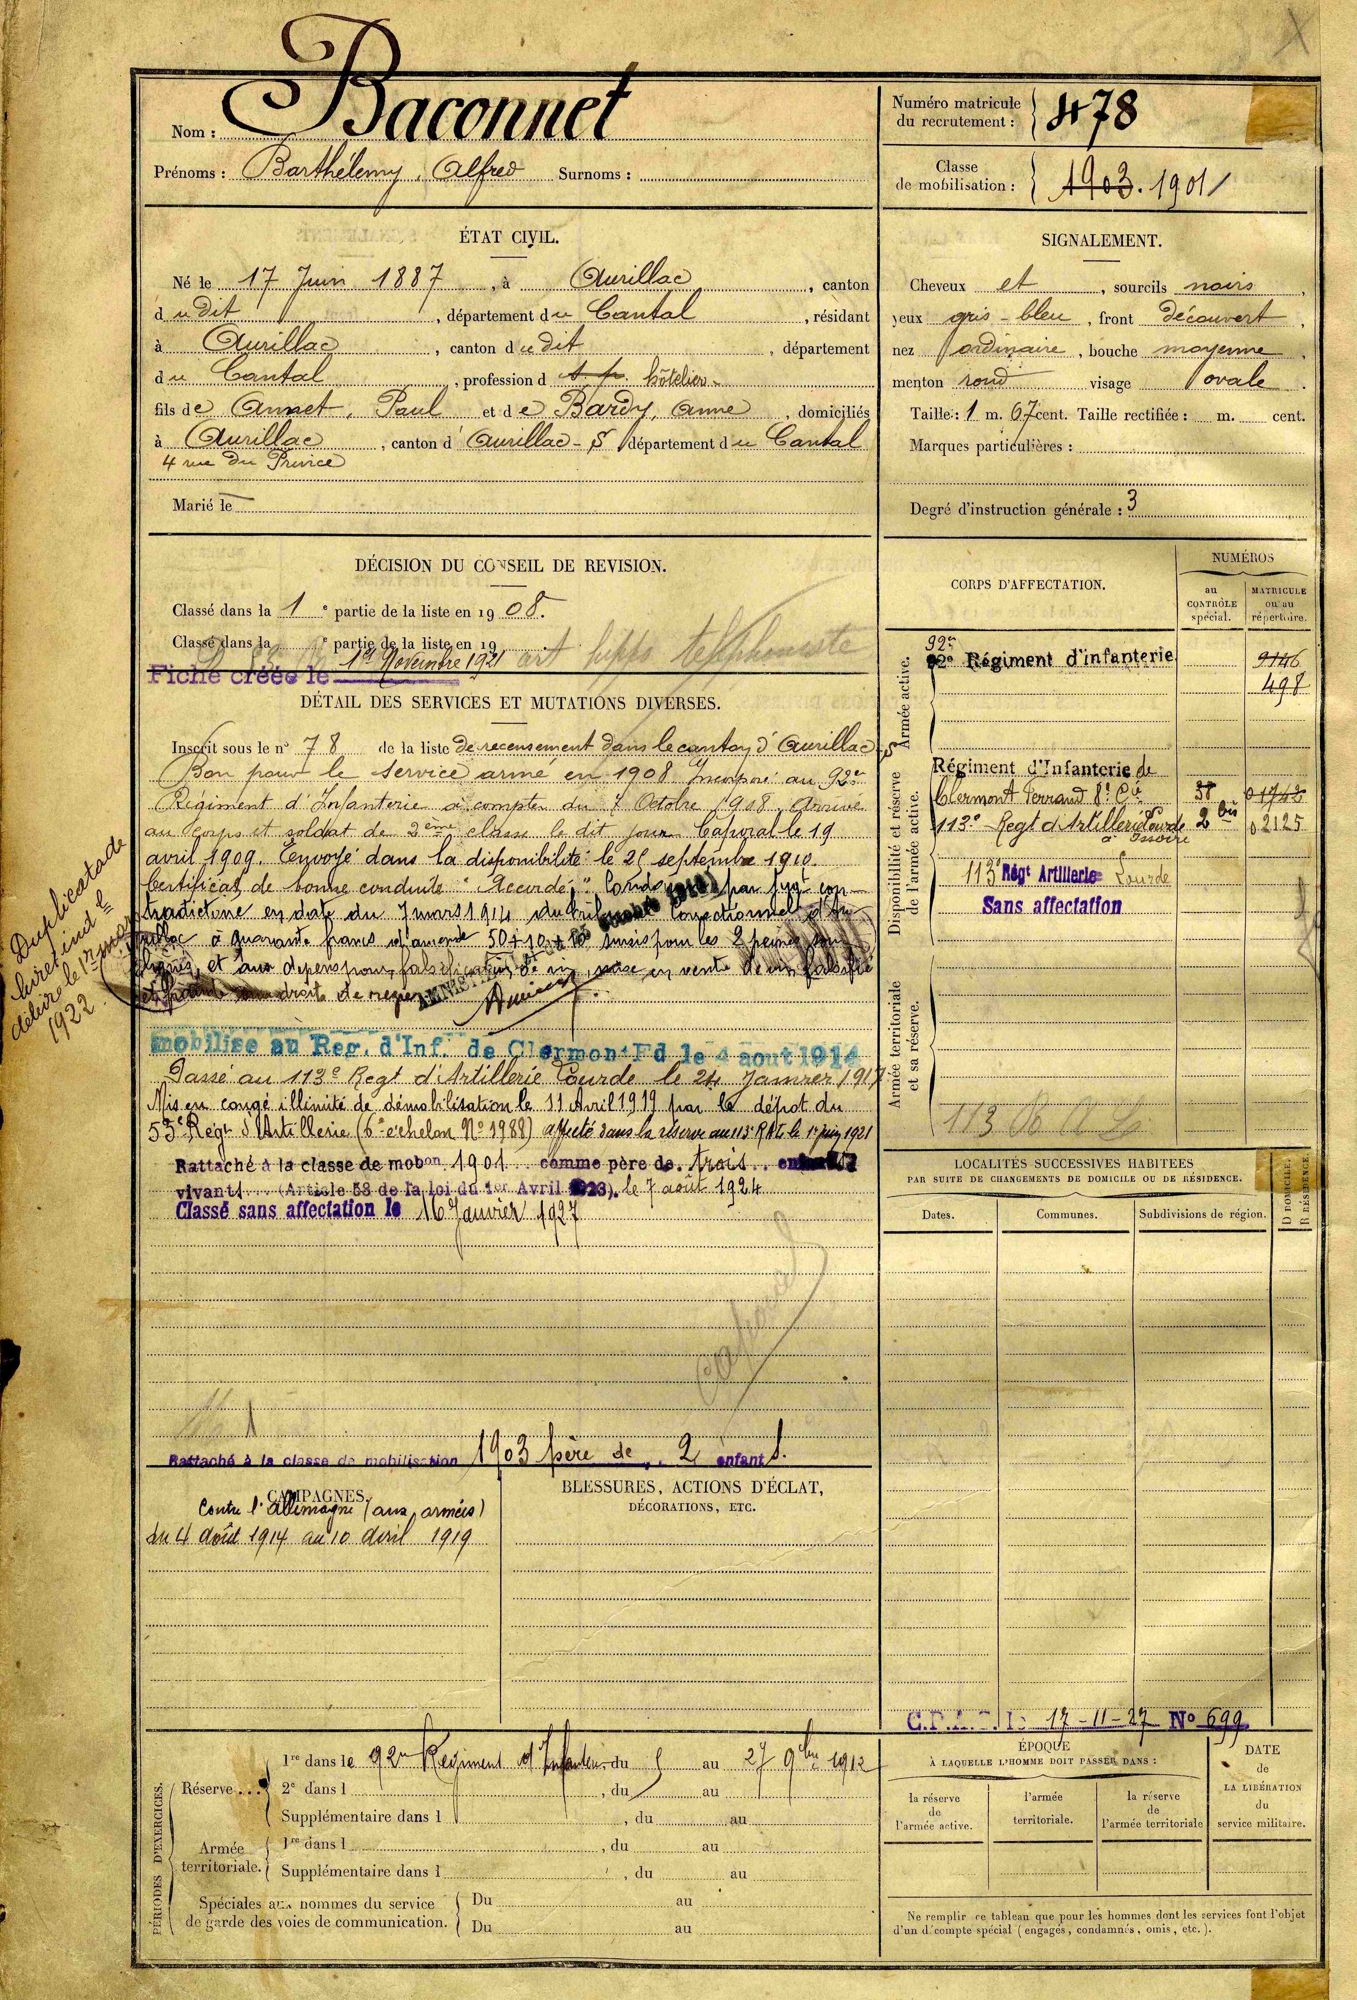 Nom : Baconnet
Prénoms : Barthélemy, Alfred Surnoms :
Numéro matricule
du recrutement : 478
Classe
de mobilisation : 1903. 1901
ÉTAT CIVIL.
Né le 17 Juin 1887, à Aurillac, canton
du dit, département du Cantal, résidant
à Aurillac, canton du dit, département
du Cantal, profession d s.p. hôtelier
fils de Annet, Paul et de Bardy, Anne, domiciliés
à Aurillac, canton d'Aurillac-S, département du Cantal
4 rue du Prince
Marié le
SIGNALEMENT.
Cheveux et, sourcils noirs,
yeux gris-bleu, front découvert,
nez ordinaire, bouche moyenne,
menton rond visage ovale.
Taille : 1 m. 67 cent. Taille rectifiée : m. cent.
Marques particulières :
Degré d'instruction générale : 3
DÉCISION DU CONSEIL DE REVISION.
Classé dans la 1e partie de la liste en 1908.
Classé dans la e partie de la liste en 19
téléphoniste
Fiche créée le 1er Novembre 1921
DÉTAIL DES SERVICES ET MUTATIONS DIVERSES.
Inscrit sous le n° 78 de la liste de recensement dans le canton d'Aurillac-S
Bon pour le service armé en 1908 Incorporé au 92e
Régiment d'Infanterie à compter du 7 Octobre 1908. Arrivé
au corps et soldat de 2ème classe le dit jour. Caporal le 19
avril 1909. Envoyé dans la disponibilité le 25 septembre 1910.
Certificat de bonne conduite "Accordé".
tradictoire en date du 7 mars 1914 du tribunal Correctionnel d'Au
rillac à quarante francs d'amende 50+10+10 sursis pour les 2 peines
et aux dépens pour falsification de vin, mise en vente de vin falsifié
mobilisé au Rég. d'Inf. de Clermont-Fd le 4 aout 1914
Passé au 113e Regt d'Artillerie Lourde le 24 Janvier 1917
Mis en congé illimité de démobilisation le 11 Avril 1919 par le dépôt du
53e Régt d'Artillerie (6e échelon N° 1988) affecté dans la réserve au 113e RAL le 1er juin 1921
Rattaché à la classe de mobon 1901 comme père de trois enfants
vivants (Article 58 de la loi du 1er Avril 1923). le 7 août 1924
Classé sans affectation le 16 Janvier 1927
caporal
Rattaché à la classe de mobilisation 1903 père de 2 enfants.
Duplicata de
livret ind.l
délivré le 1er mars
1922
CORPS D'AFFECTATION.
NUMÉROS
au
CONTRÔLE
spécial.
MATRICULE
ou au
répertoire.
Armée active.
92e
92e Régiment d'infanterie 9146
498
Disponibilité et réserve
de l'armée active.
Régiment d'Infanterie de
Clermont Ferrand 8e Cie 38 01742
113e Regt d'Artillerie Lourde 2 bis 02125
à Issoire
113e Régt Artillerie Lourde
Sans affectation
Armée territoriale
et sa réserve.
113 R A L
LOCALITÉS SUCCESSIVES HABITÉES
PAR SUITE DE CHANGEMENTS DE DOMICILE OU DE RÉSIDENCE.
Dates. Communes. Subdivisions de région.
D DOMICILE.
R RÉSIDENCE.
CAMPAGNES.
Contre l'Allemagne (aux armées)
du 4 août 1914 au 10 avril 1919
BLESSURES, ACTIONS D'ÉCLAT,
DÉCORATIONS, ETC.
17-11-27 No 699
PÉRIODES D'EXERCICES.
Réserve...
1re dans le 92e Régiment d'Infanterie du 5 au 27 9bre 1912
2e dans l , du au
Supplémentaire dans l , du au
Armée
territoriale.
1re dans l , du au
Supplémentaire dans l , du au
Spéciales aux hommes du service
de garde des voies de communication.
Du au
Du au
ÉPOQUE
À LAQUELLE L'HOMME DOIT PASSER DANS :
la réserve
de
l'armée active.
l'armée
territoriale.
la réserve
de
l'armée territoriale
DATE
de
LA LIBÉRATION
du
service militaire.
Ne remplir ce tableau que pour les hommes dont les services font l'objet
d'un décompte spécial (engagés, condamnés, omis, etc.).